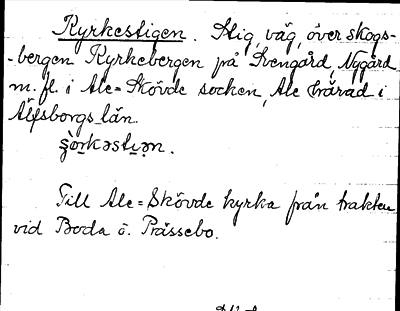 Kyrkestigen. Stig, väg, över skogs-
-bergen Kyrkebergen på Svengård, Nygård
m. fl. i Ale=Skövde socken, Ale härad i
Älfsborgs län.
Till Ale=Skövde kyrka från trakten
vid Boda ö. Prässebo.